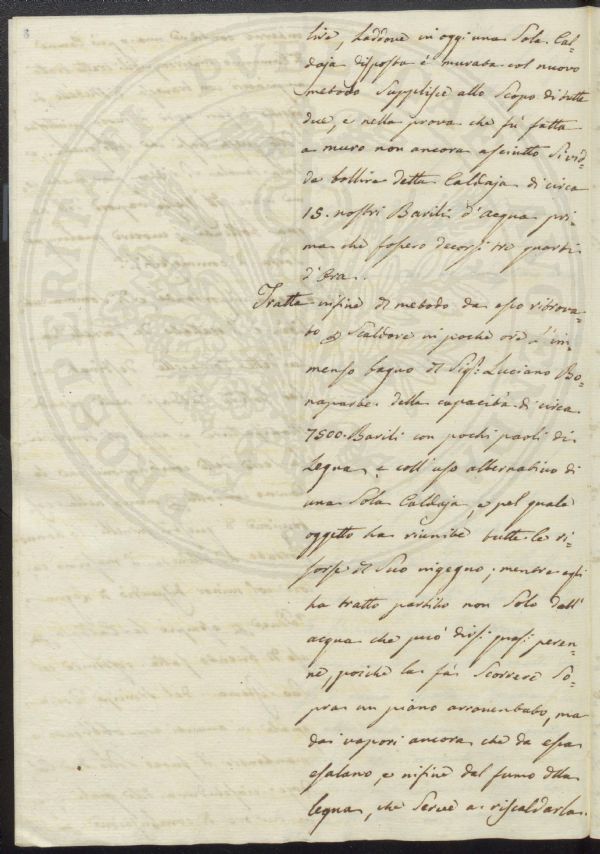 8
live, laddove in oggi una Sola Cal=
daja disposta è murata col nuovo
metodo supplisce allo Scopo di tutte
due, e nella prova che fù fatta
a muro non ancora asciutto Si vid=
de bollire detta Caldaja di circa
15. nostri Barili d'acqua pri=
ma che fossero decorsi tre quarti
d'Ora.
Tratta infine del metodo da esso ritrova=
to p Scaldare in poche ore l'im=
menso bagno del Sig. Luciano Bo=
naparte della capacità di circa
7500. Barili con pochi paoli di
Legna, e coll'uso alternativo di
una Sola Caldaja, e pel quale
oggetto ha riunite tutte le ri=
sorse del Suo ingegno; mentre egli
ha tratto partito non Solo dall'
acqua che può dirsi quasi peren=
ne, poichè la fà Scorrere So=
pra un piano arroventato, ma
dai vapori ancora che da essa
esalano, e infine dal fumo della
legna, che Serve a riscaldarla.
PROSPERI